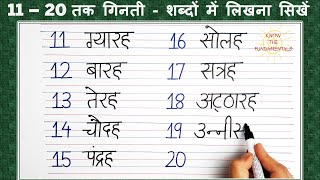 11 – 20 तक गिनती - शब्दों में लिखना सिखें
11 ग्यारह
12 बारह
13 तेरह
14 चौदह
15 पंद्रह
16 सोलह
17 सत्रह
18 अट्ठारह
19 उन्नीस
20
KNOW
THE
FUNDAMENTALS